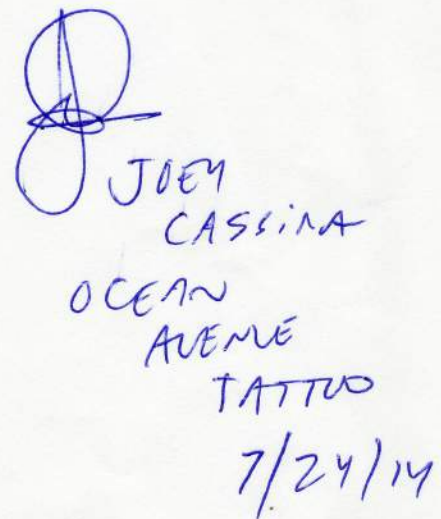 JOEY
CASSINA
OCEAN
AVENUE
TATTOO
7/24/14